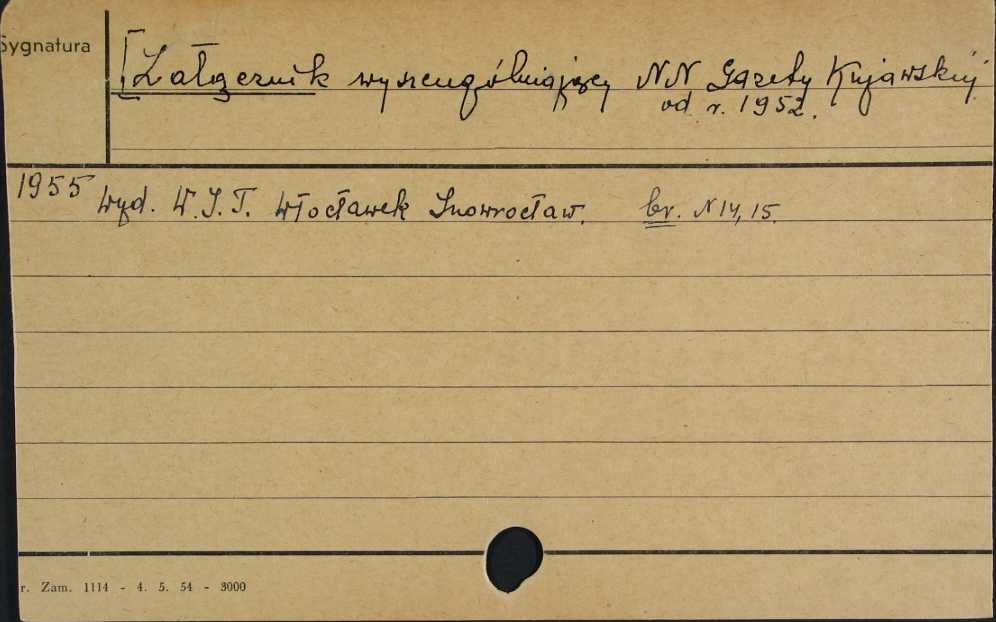 Sygnatura
[Załącznik wyszczególniający NN Gazety Kujawskiej
od r. 1952.
1955 Wyd. W.I.T. Włocławek Inowrocław. br. N 14, 15.
r. Zam. 1114 - 4. 5. 54 - 3000